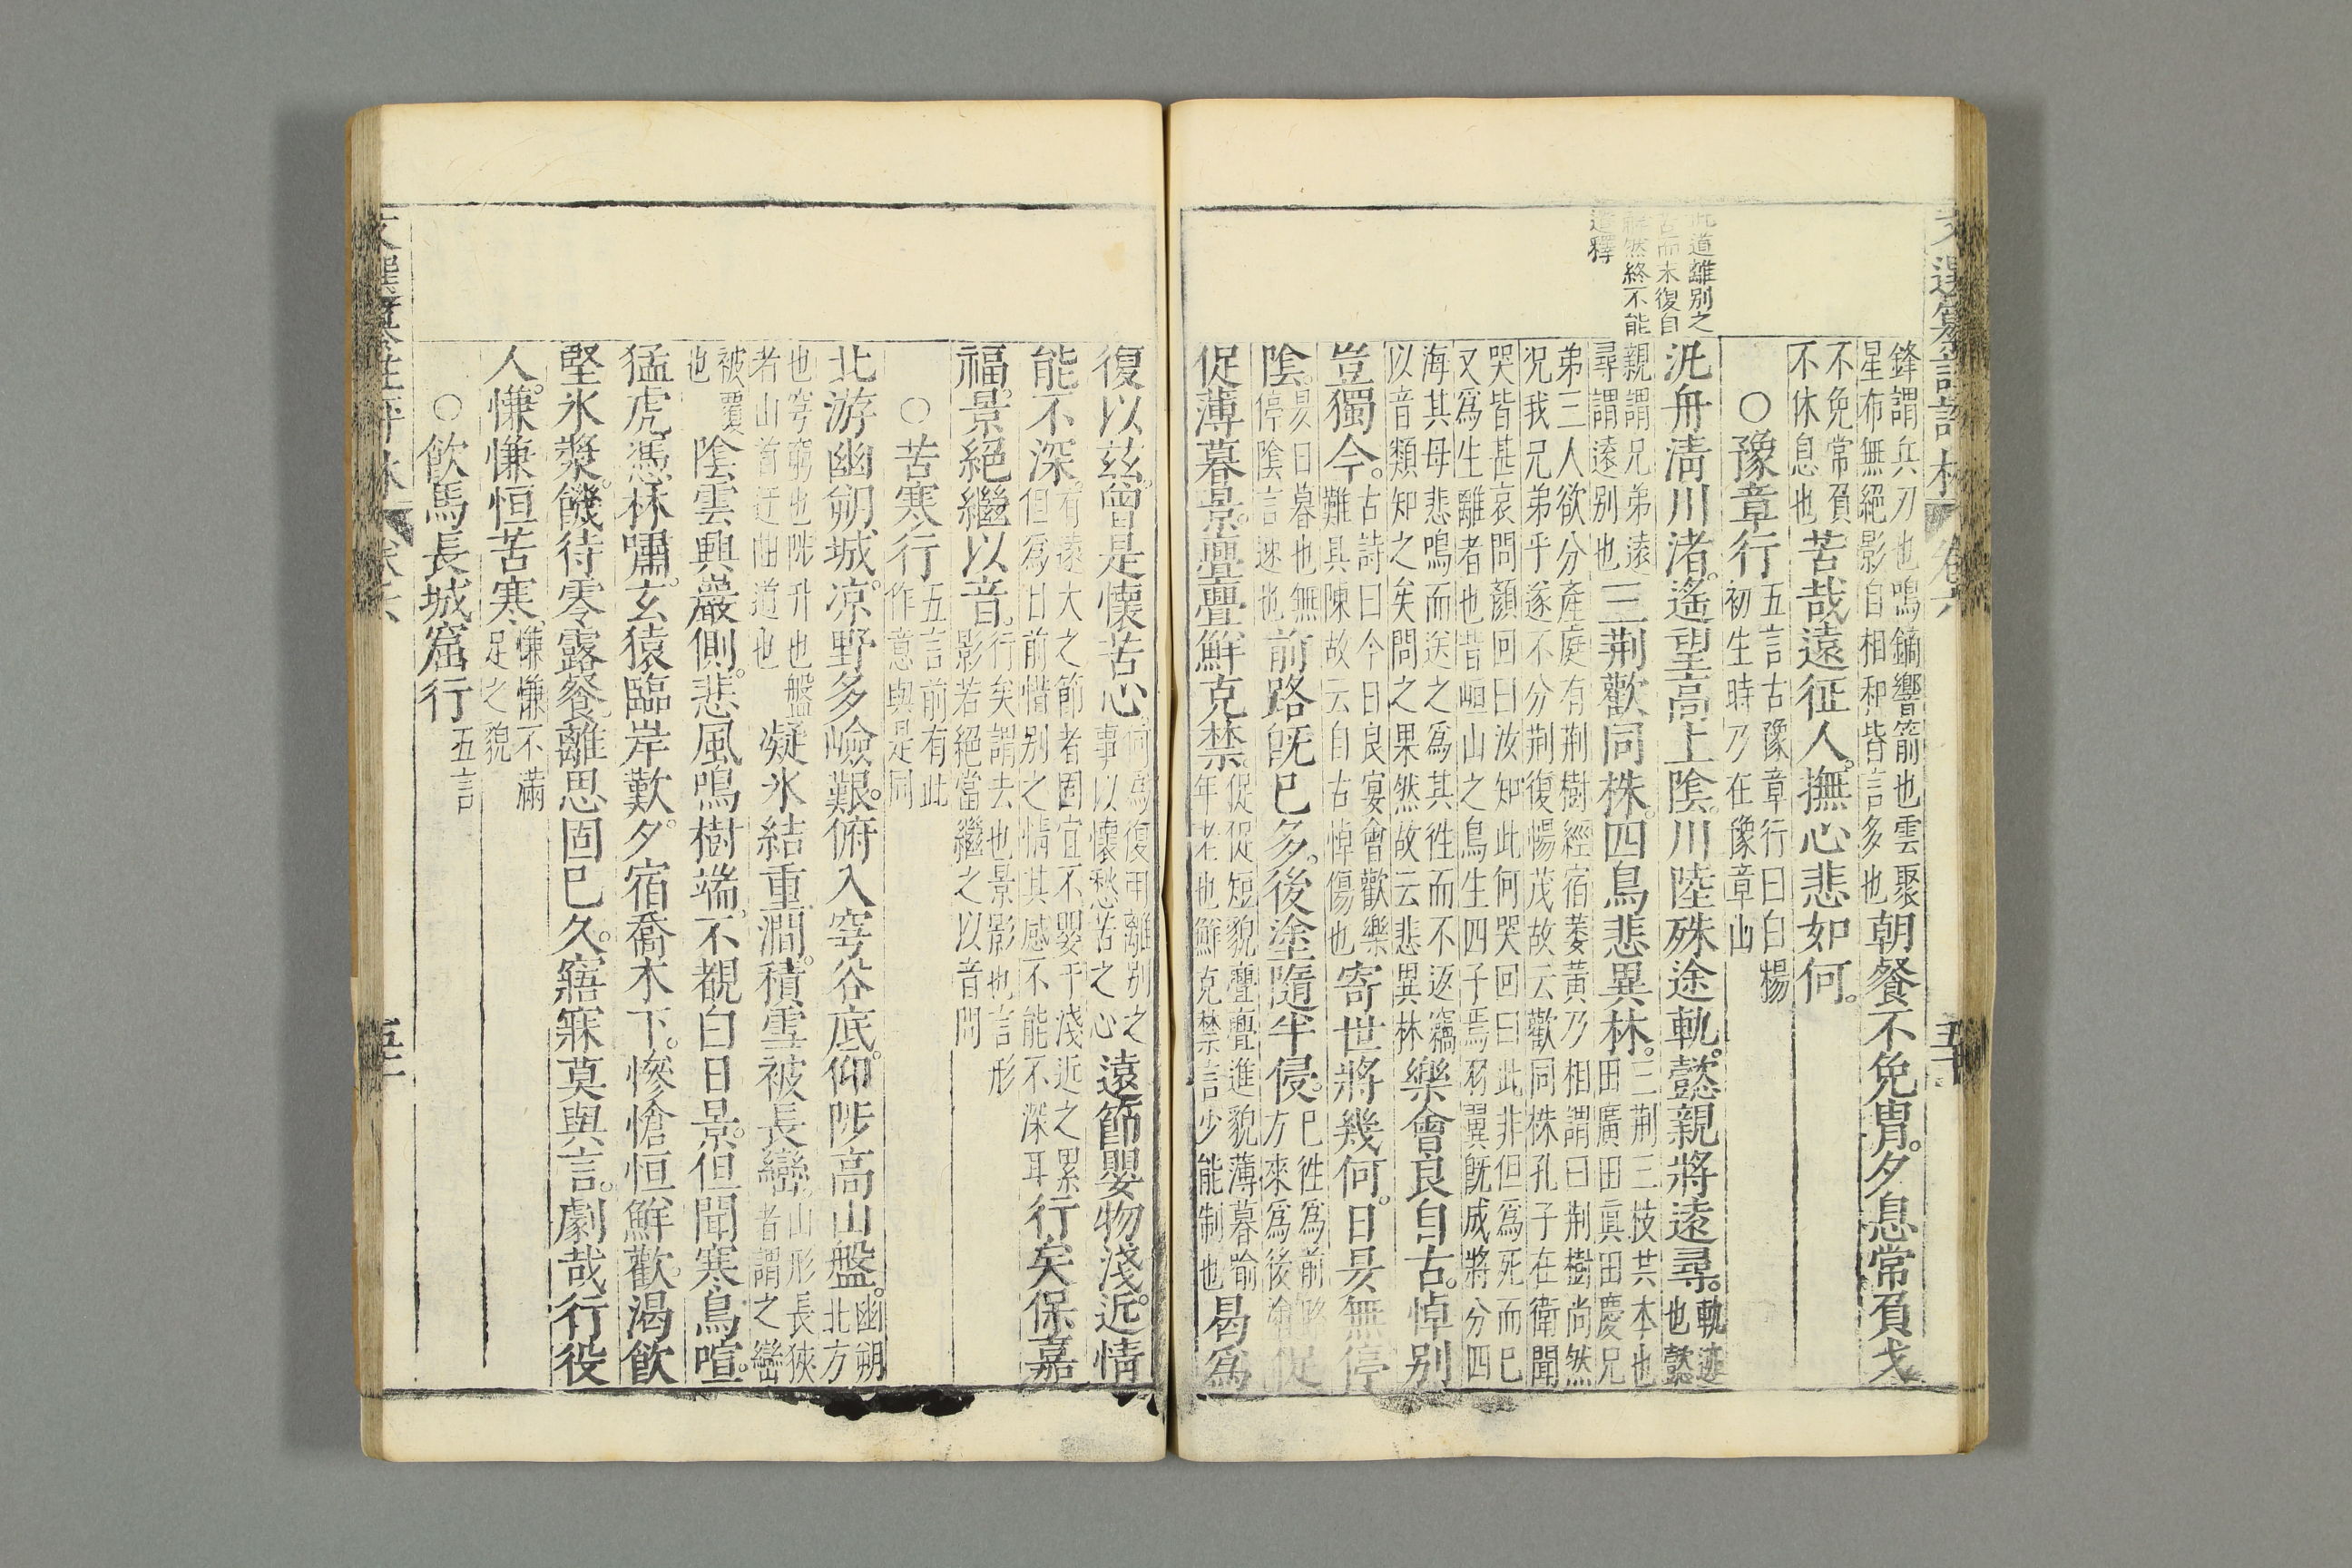 選纂註評林 卷六 五十
鋒謂兵刃也鳴鏑響箭也雲聚
星布無絕影自相和皆言多也
朝餐不免胄夕息常負戈
不免常負
不休息也
苦哉遠征人撫心悲如何
○豫章行
五言古豫章行曰白楊
初生時乃在豫章山
此道離別之
苦而未復自
解然終不能
遣釋
汎舟清川渚遙望高山陰川陸殊途軌懿親將遠尋
軌迹
也懿
親謂兄弟遠
尋謂遠别也
三荆歡同株四鳥悲異林
三荆三枝共本也
田廣田真田慶兄
弟三人欲分產庭有荆樹經宿萎黃乃相謂曰荆樹尚然
况我兄弟乎遂不分荆復暢茂故云歡同株孔子在衛聞
哭皆甚哀問顏回曰汝知此何哭回曰此非但為死而已
又為生離者也昔峘山之鳥生四子焉羽翼旣成將分四
海其母悲鳴而送之為其徃而不返竊
以音類知之矣問之果然故云悲異林
樂會良自古悼别
豈獨今
古詩曰今日良宴會歡樂
難具陳故云自古悼傷也
寄世將幾何日昃無停
陰
易曰日暮也無
停陰言速也
前路旣已多後塗隨年侵
已徃為前路
方來為後塗
促
促薄暮景亹亹鮮克禁
促促短貌亹亹進貌薄暮喻
年老也鮮克禁言少能制也
曷為
復以茲曾是懷苦心
何為復用離别之
事以懷愁苦之心
遠節嬰物淺近情
能不深
有遠大之節者固宜不嬰于淺近之累
但為目前惜别之情其感不能不深耳
行矣保嘉
福景絕繼以音
行矣謂去也景影也言形
影若絕當繼之以音問
○苦寒行
五言前有此
作意與是同
北游幽朔城凉野多險艱俯入穹谷底仰陟高山盤
幽朔
北方
也穹窮也陟升也盤
者山首迂曲道也
凝氷結重澗積雪被長巒
山形長狹
者謂之巒
被覆
也
陰雲興巖側悲風鳴樹端不覩白日景但聞寒鳥喧
猛虎憑林嘯玄猿臨岸歎夕宿喬木下慘愴恒鮮歡渴飲
堅氷漿饑待零露餐離思固已久寤寐莫與言劇哉行役
人慊慊恒苦寒
慊慊不滿
足之貌
○飲馬長城窟行
五言
文選纂註評林 卷六 五十一